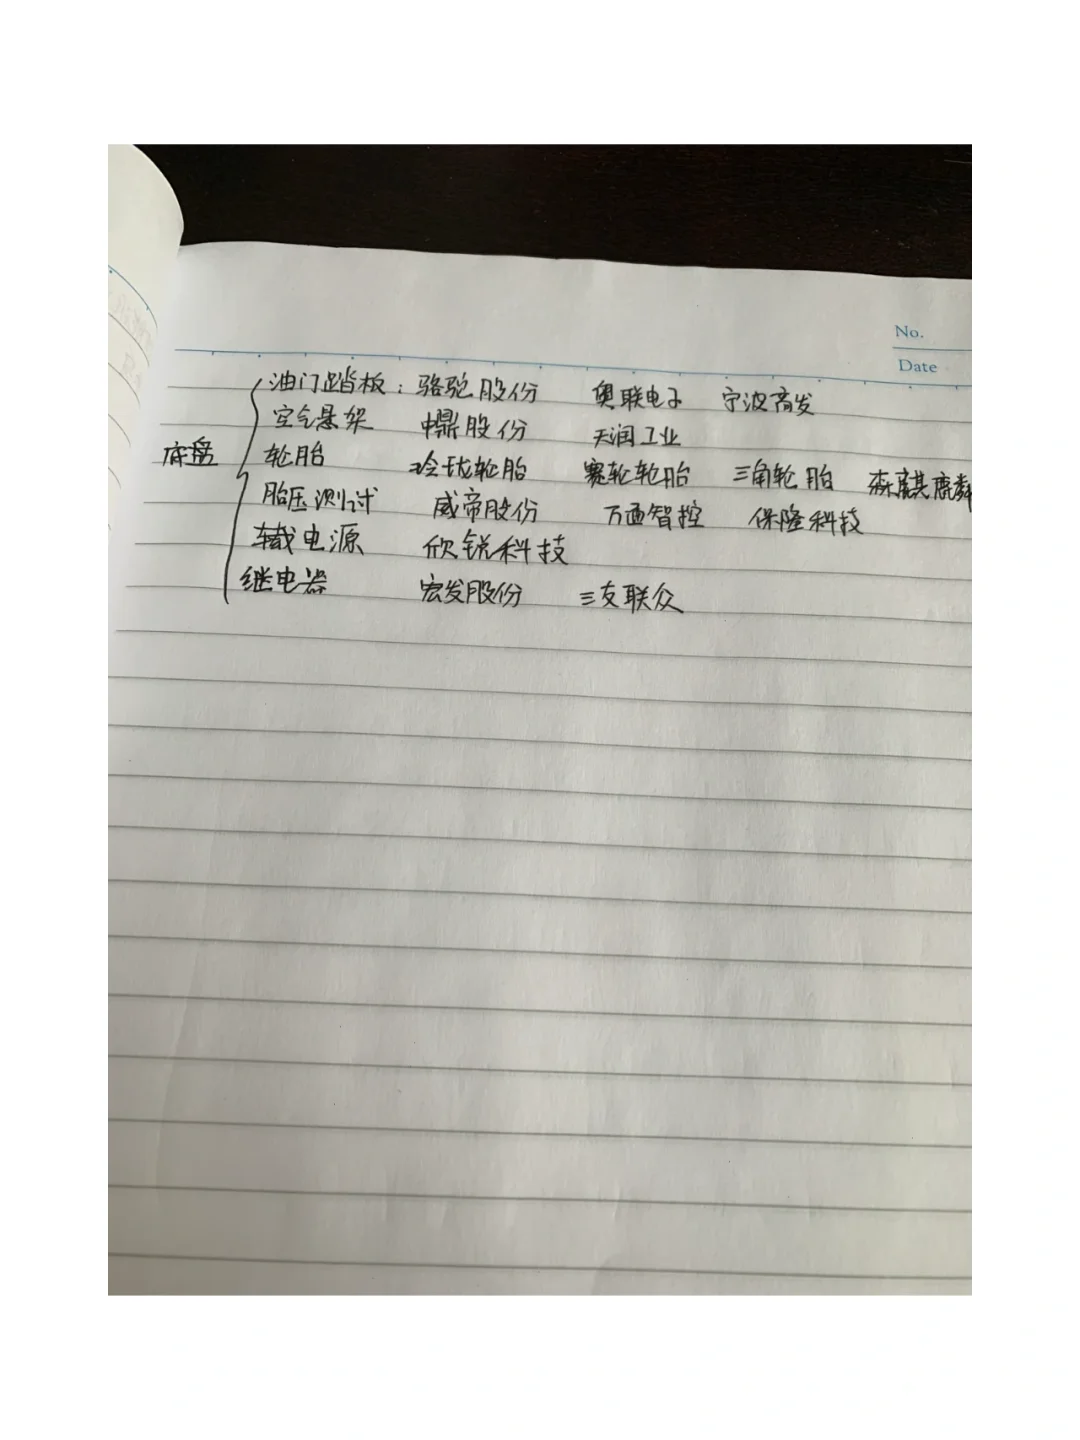 No.
Date
油门踏板：骆驼股份 奥联电子 宁波高发
空气悬架 中鼎股份 天润工业
底盘 轮胎 玲珑轮胎 赛轮轮胎 三角轮胎 森麒麟
胎压测试 威帝股份 万通智控 保隆科技
车载电源 欣锐科技
继电器 宏发股份 三友联众